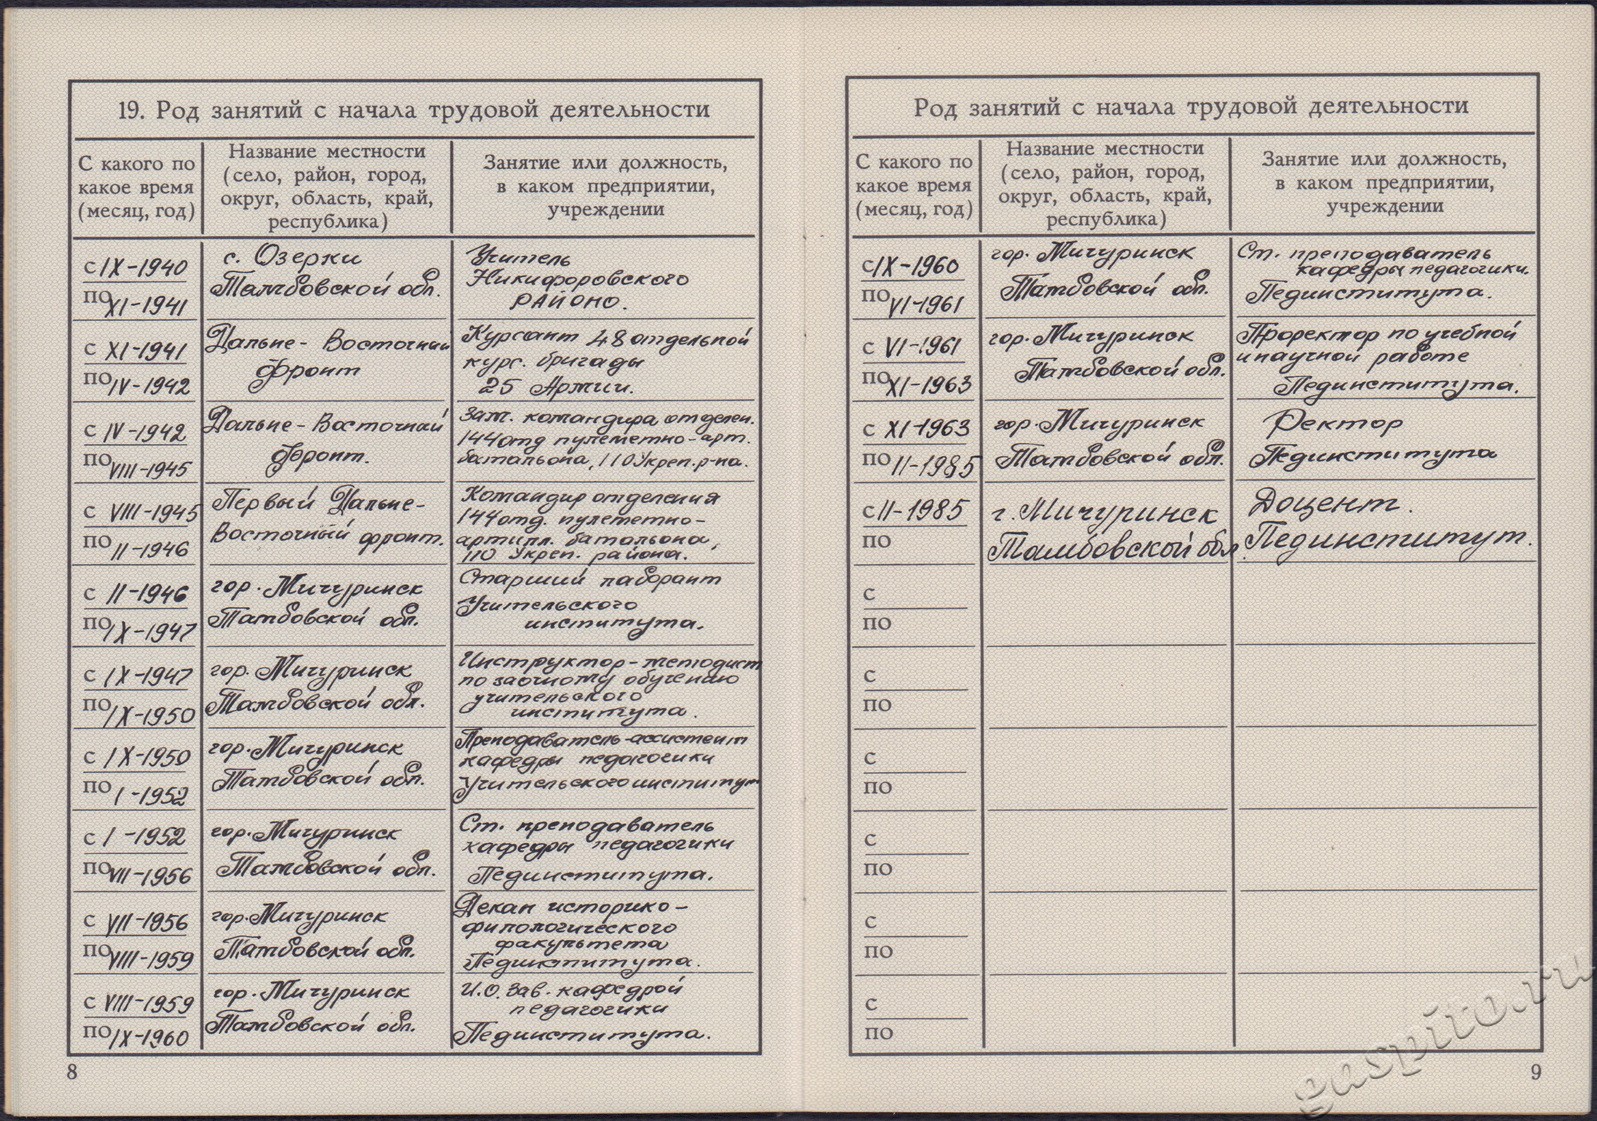 19. Род занятий с начала трудовой деятельности
С какого по
какое время
(месяц, год)
Название местности
(село, район, город,
округ, область, край,
республика)
Занятие или должность,
в каком предприятии,
учреждении
с IX-1940
по XI-1941
с. Озерки
Тамбовской обл.
Учитель
Никифоровского
РАЙОНО.
с XI-1941
по IV-1942
Дальне-Восточный
фронт
Курсант 48 отдельной
курс. бригады
25 Армии.
с IV-1942
по VIII-1945
Дальне-Восточный
Фронт.
Зам. командира отделен.
144 отд пулеметно-арт.
батальона, 110 Укреп. р-на.
с VIII-1945
по II-1946
Первый Дальне-
Восточный фронт.
Командир отделения
144 отд. пулеметно-
артилл. батальона,
110 Укреп. района.
с II-1946
по IX-1947
гор. Мичуринск
Тамбовской обл.
Старший лаборант
Учительского
института.
с IX-1947
по IX-1950
гор. Мичуринск
Тамбовской обл.
Инструктор-методист
по заочному обучению
учительского
института.
с IX-1950
по I-1952
гор. Мичуринск
Тамбовской обл.
Преподаватель-ассистент
кафедры педагогики
Учительского института
с I-1952
по VII-1956
гор. Мичуринск
Тамбовской обл.
Ст. преподаватель
кафедры педагогики
Пединститута.
с VII-1956
по VIII-1959
гор. Мичуринск
Тамбовской обл.
Декан историко-
филологического
факультета
Пединститута.
с VIII-1959
по IX-1960
гор. Мичуринск
Тамбовской обл.
И.О. зав. кафедрой
педагогики
Пединститута.
8
Род занятий с начала трудовой деятельности
С какого по
какое время
(месяц, год)
Название местности
(село, район, город,
округ, область, край,
республика)
Занятие или должность,
в каком предприятии,
учреждении
с IX-1960
по VI-1961
гор. Мичуринск
Тамбовской обл.
Ст. преподаватель
кафедры педагогики.
Пединститута.
с VI-1961
по XI-1963
гор. Мичуринск
Тамбовской обл.
Проректор по учебной
и научной работе
Пединститута.
с XI-1963
по II-1985
гор. Мичуринск
Тамбовской обл.
Ректор
Пединститута
с II-1985
по
г. Мичуринск
Тамбовской обл.
Доцент.
Пединститут.
с
по
с
по
с
по
с
по
с
по
с
по
9
gaspito.ru